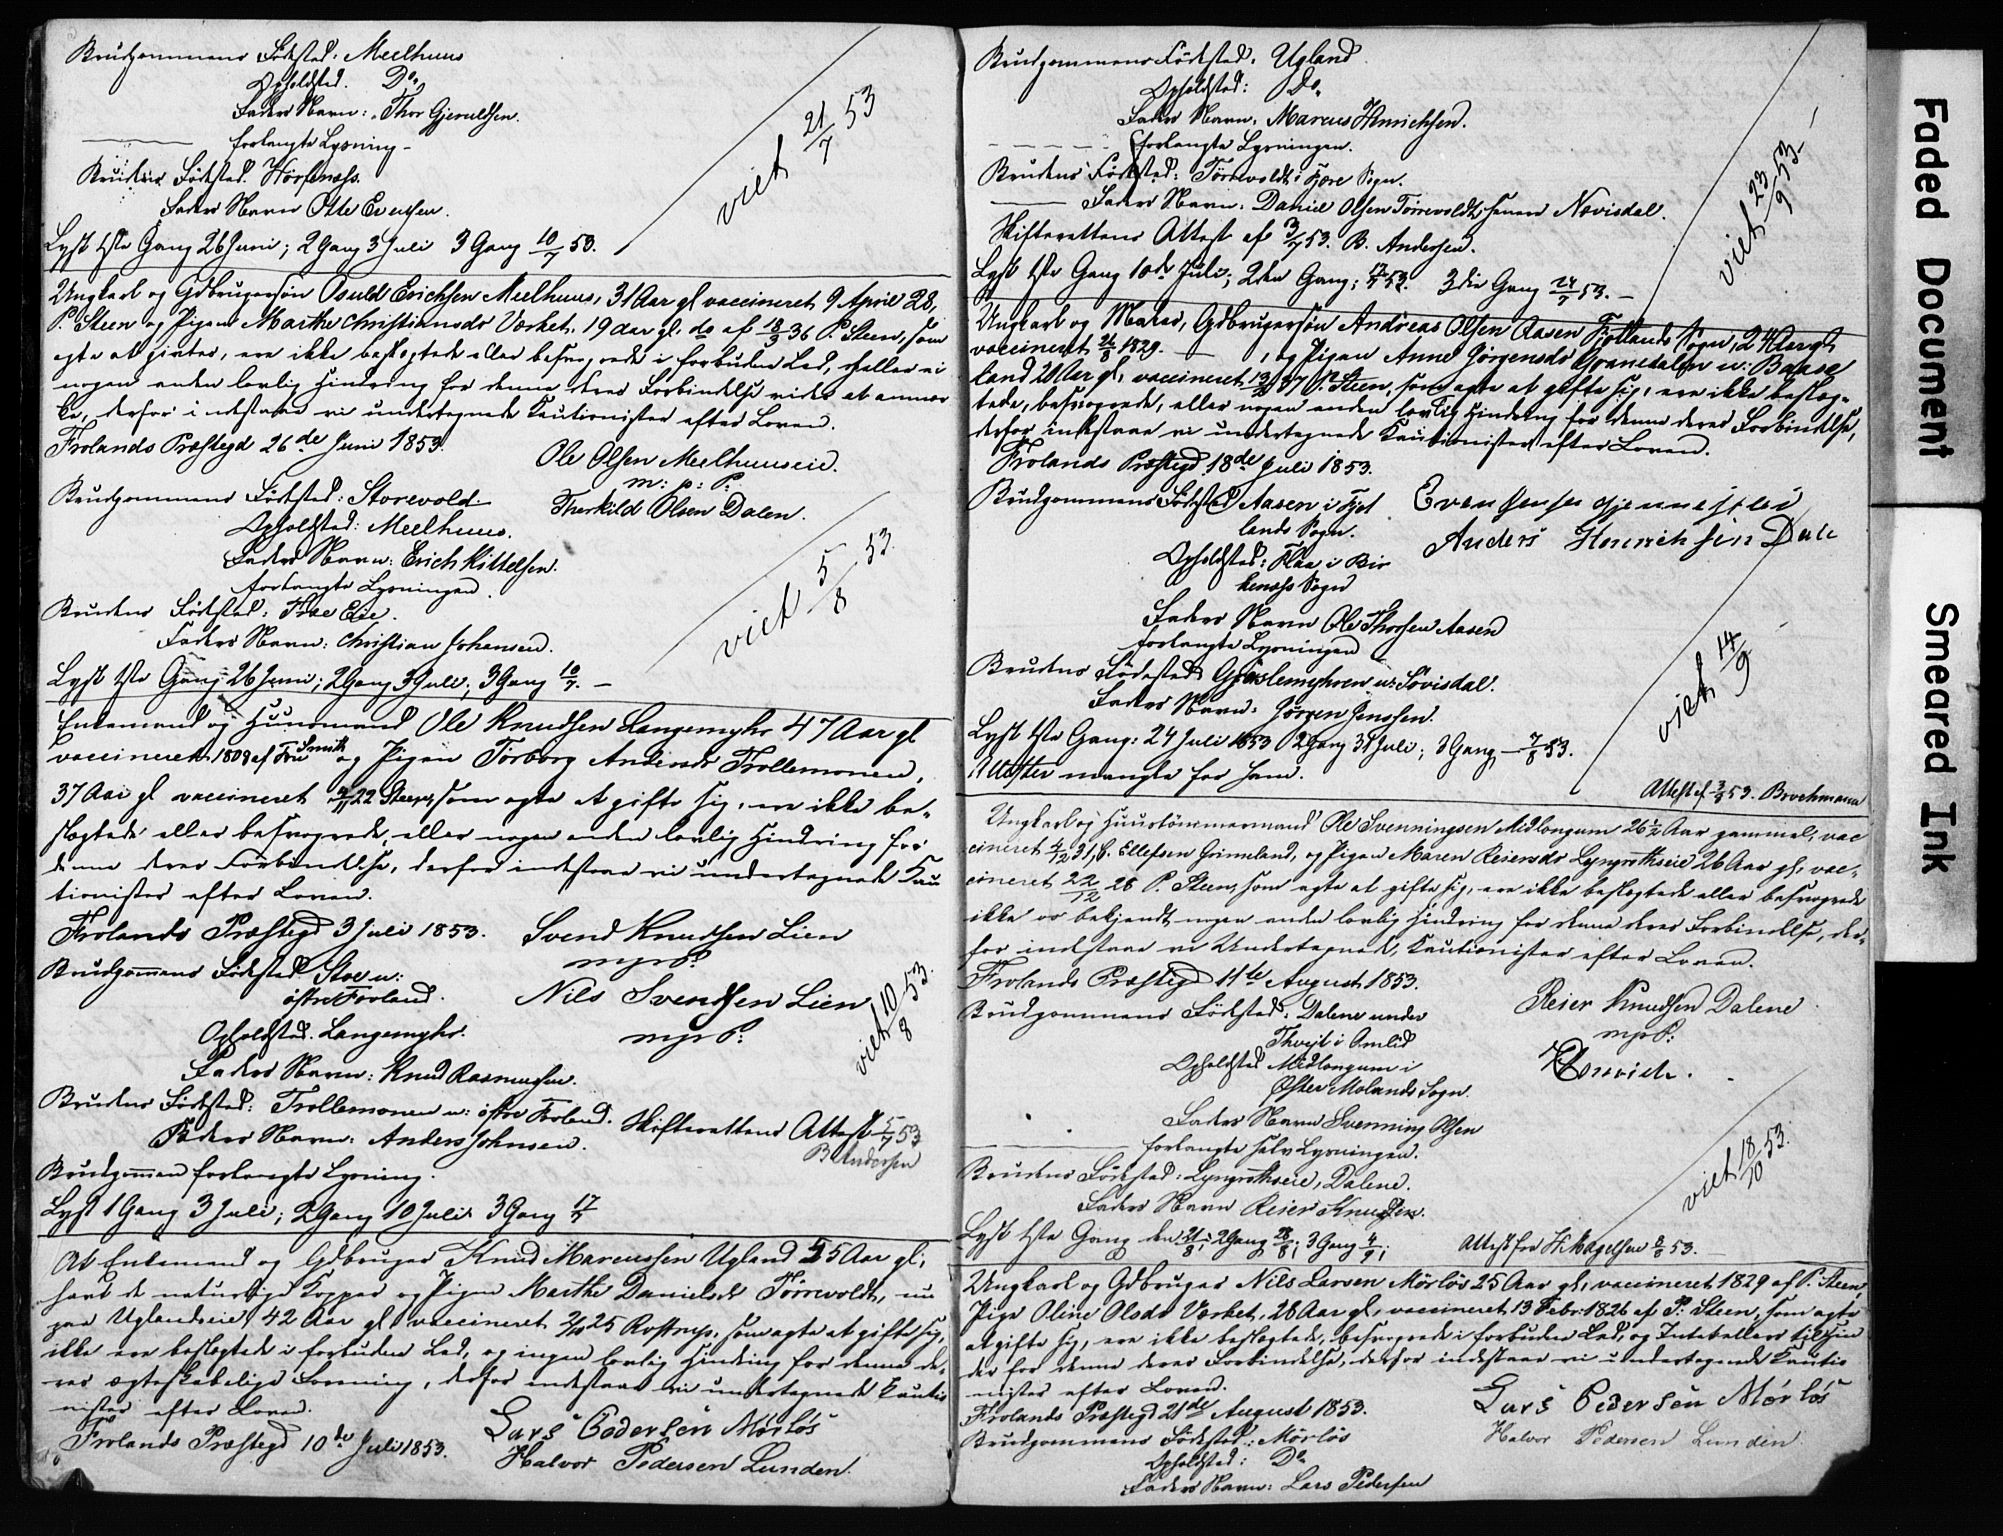 Brudgommens Fødested: Meelhuus
Opholdsted. Do
Faders Navn: Thor Gjeruldsen.
forlangte Lysning -
Brudens Fødested.
Faders Navn Otte Evensen.
Lyst 1ste Gang 26 Juni; 2 Gang 3 Juli 3 Gang 10/7 53.
viet 21/7 53
Ungkarl og Gdbrugersøn Osuld Erichsen Meelhuus, 31 Aar gl vaccineret 9 April 28,
P. Steen og Pigen Marthe Christiansdr Værket, 19 aar gl. do af 18/9 36 P. Steen, som
agte at giftes, ere ikke beslægtede eller besvogrede i forbuden Led, heller ei
nogen anden lovlig Hindring for denne deres Forbindelse vides at anmær-
ke, derfor indestaae vi undertegnede Kautionister efter Loven.
Frolands Præstegd 26de Juni 1853.
Ole Olsen Meelhuuseie.
m: p: P:
Therkild Olsen Dalen.
Brudgommens Fødested: Storevold
Opholdsted: Meelhuus.
Faders Navn: Erich Kittelsen.
forlangte Lysningen.
Brudens Fødested:
Faders Navn: Christian Johansen.
Lyst 1ste Gang 26 Juni; 2 Gang 3 Juli; 3 Gang 10/7. —
viet 5/8 53
Enkemand og Huusmand Ole Knudsen Langemyhr 47 Aar gl
vaccineret 1809 af Fru Smith og Pigen Torborg Andersdr Trollemonen,
37 Aar gl vaccineret 22 Steen, som agte at gifte sig, ere ikke be-
slægtede eller besvogrede, eller nogen anden lovlig Hindring for
denne deres Forbindelse, derfor indestaae vi undertegnede Kau
tionister efter Loven.
Frolands Præstegd 3 Juli 1853.
Svend Knudsen Lien
Nils Svendsen Lien
Brudgommens Fødested
østre Froland.
Opholdsted. Langemyhr.
Faders Navn: Knud Rasmussen.
viet 10/8 53.
Brudens Fødested: Trollemonen u: østre Froland. Skifterettens Attest 5/7 53
Faders Navn: Anders Johnsen. B Andersen
Brudgommen forlangte Lysning.
Lyst 1 Gang 3 Juli; 2 Gang 10 Juli 3 Gang 17/7
At Enkemand og Gdbruger Knud Marcussen Ugland 55 Aar gl,
havt de naturlige Kopper og Pigen Marthe Danielsdr Tørrevoldt, nu
paa Uglandseie, 42 Aar gl vaccineret 25 Rostrup, som agte at gifte sig,
ikke ere beslægtede i forbuden Led, og ingen lovlig Hindring for denne de-
res ægteskabelige Forening, derfor indestaae vi undertegnede Kautio
nister efter Loven.
Frolands Præstegd 10de Juli 1853.
Lars Pedersen Mørløs
Halvor Pedersen Lunden.
Brudgommens Fødested: Ugland
Opholdsted: Do
Faders Navn: Marcus Henrichsen.
forlangte Lysningen.
Brudens Fødested: Tørrevoldt i Fjære Sogn.
Faders Navn: Daniel Olsen Tørrevoldt, senere Nævisdal.
Skifterettens Attest af 3/7 53. B. Andersen.
Lyst 1ste Gang 10de Juli; 2den Gang: 17/7 53. 3die Gang 24/7 53. —
viet 23/9 53 —
Ungkarl og Gdbrugersøn Andreas Olsen Aasen Hollands Sogn, 24 Aar gl,
vaccineret 1829. — , og Pigen Anne Jørgensdr
land 20 Aar gl, vaccineret 37 P. Steen, som agte at gifte sig, ere ikke beslæg-
tede, besvogrede, eller nogen anden lovlig Hindring for denne deres Forbindelse,
derfor indestaae vi undertegnede Kautionister efter Loven.
Frolands Præstegd 18de Juli 1853.
Brudgommens Fødested Aasen i
lands Sogn.
Opholdsted: Flaa i Bir
kenæs Sogn
Faders Navn Ole Thorsen Aasen
forlangte Lysningen
Anders Henrichsen Dale
Brudens Fødested u: Løvisdal.
Faders Navn: Jørgen Jenssen.
Lyst 1ste Gang: 24 Juli 1853 2 Gang 31 Juli; 3 Gang 7/8 53.
Attester mangle for ham.
viet 14/9
Attest af 3/8 53. Brochmann
Ungkarl og Huustømmermand Ole Svenningsen Midlongum 26 1/2 Aar gammel, vac
cineret 4/12 31, C. Ellefsen Grimeland, og Pigen Maren Reiersdr Lyngrothseie 26 Aar gl, vac-
cineret 22/12 28 P. Steen, som agte at gifte sig, ere ikke beslægtede eller besvogrede
ikke os bekjendt nogen anden lovlig Hindring for denne deres Forbindelse, der-
for indestaae vi Undertegnede, Kautionister efter Loven.
Frolands Præstegd 11te August 1853.
Reier Knudsen Dalene
Brudgommens Fødested: Dalene under
Thveit i Omlid
Opholdsted Midlongum i
Øster Molands Sogn.
Faders Navn Svenning Olsen
forlangte selv Lysningen.
Brudens Fødested: Lyngrothseie, Dalene.
Faders Navn Reier Knudsen.
Lyst 1ste Gang den 21/8; 2 Gang 28/8; 3 Gang 4/9;
viet 18/10 53.
Attest fra H. Magelsen 8/8 53.
Ungkarl og Gdbruger Nils Larsen Mørløs 25 Aar gl, vaccineret 1829 af P. Steen,
Pige Oline Olsdr Værket, 28 Aar gl, vaccineret 13 Febr. 1826 af P. Steen, som agte
at gifte sig, ere ikke beslægtede, besvogrede i forbuden Led, og
der for denne deres Forbindelse, derfor indestaae vi undertegnede Kautio
nister efter Loven.
Frolands Præstegd 21de August 1853.
Lars Pedersen Mørløs
Halvor Pedersen Lunden
Brudgommens Fødested: Mørløs
Opholdsted: Do
Faders Navn: Lars Pedersen
Faded Document
Smeared Ink